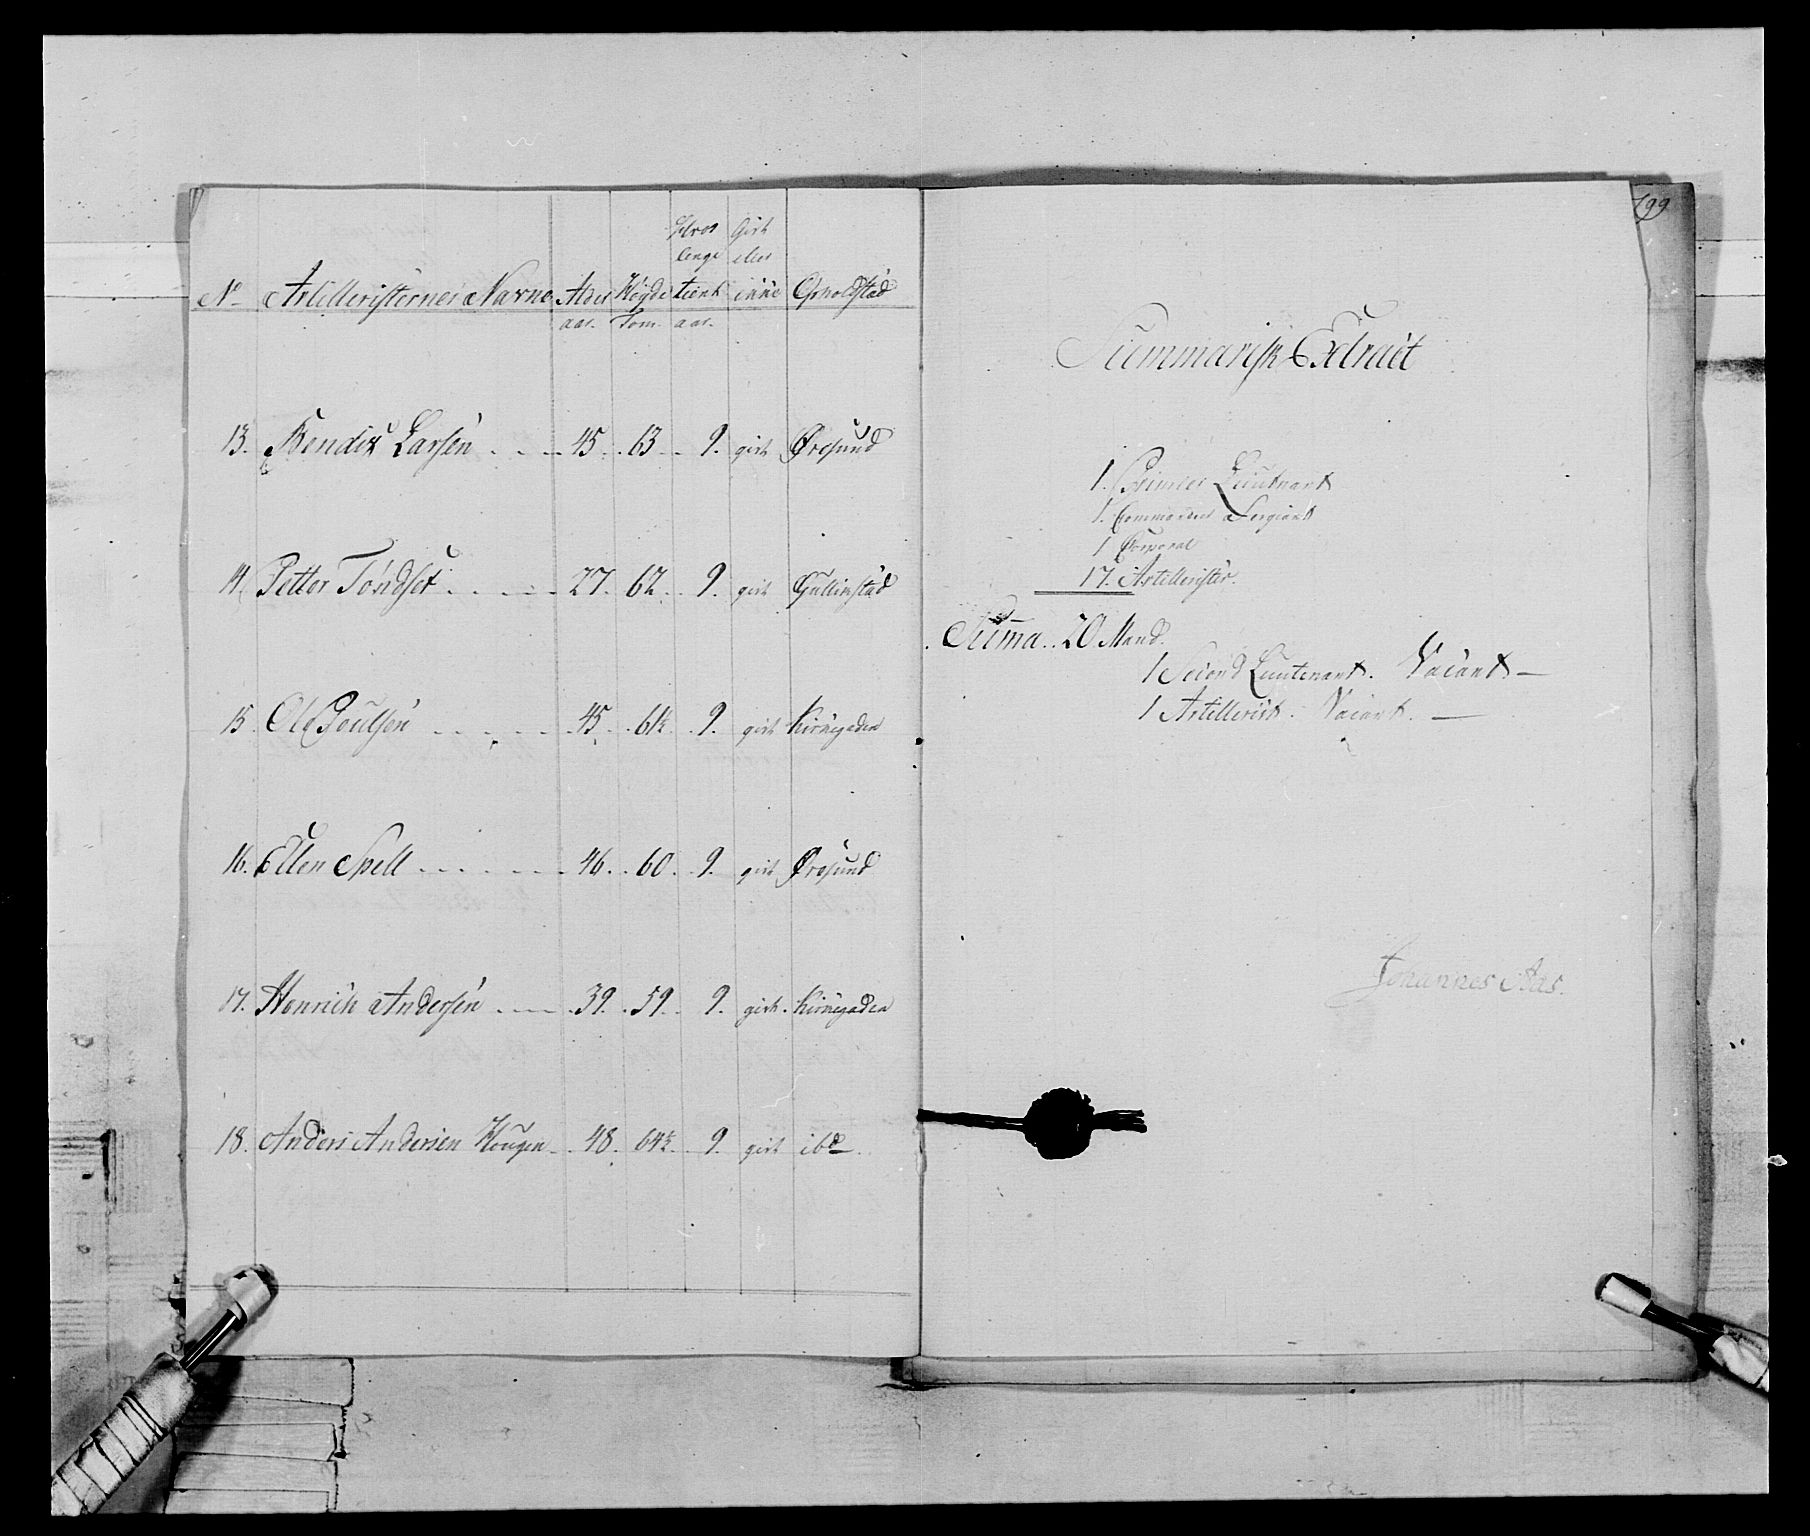 Hvor Gift
lenge eller
No Artilleristernes Navne Alder Høyde tient ikke Opholdstæd
aar. Tom. aar.
13. Bendix Larsen 45. 63 9. gift Øresund
14. Petter Tøndset 27. 62. 9. gift Gullikstad
15. Ole Poulsen 45. 61½ 9. gift Kirkegaden
16. Ellen Spell 46. 60. 9. gift Øresund
17. Henrich Andersen 39. 59. 9. gift Kirkegaden
18. Anders Andersen Hougen 48. 64½ 9. gift ibd
199
Summarisk Extract
1. Premier Lieutnant
1. Commandeer Sergiant
1 Corporal
17. Artillerister.
Suma .. 20 Mand.
1 Second Lieutenant. Vacant —
1 Artellerist. Vacant. —
Johannes Aas.